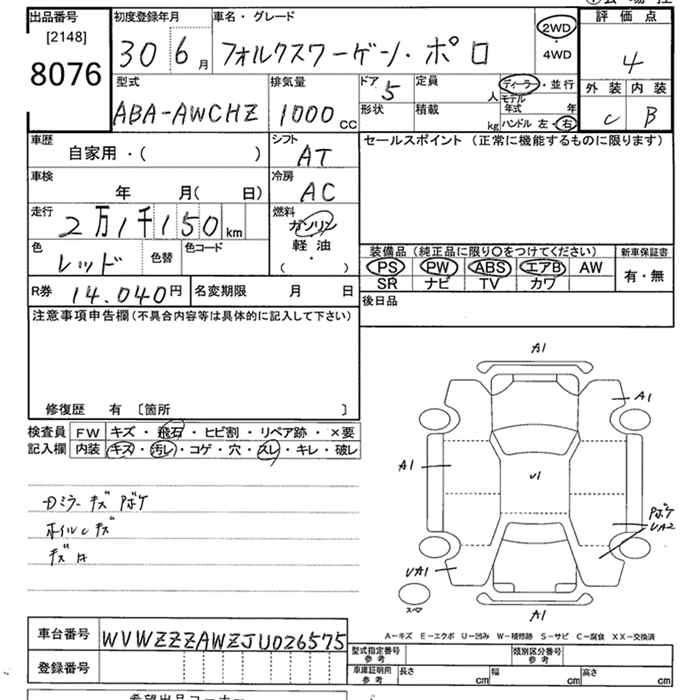 出品番号
[2148]
8076
初度登録年月
30 6月
車名・グレード
フォルクスワーゲン・ポロ
2WD
・
4WD
評価点
4
外装 内装
C B
型式
ABA-AWCHZ
排気量
1000cc
ドア 5
形状
定員 人
積載 kg
ディーラー・並行
モデル年式 年
ハンドル 左・右
車歴
自家用・( )
シフト
AT
セールスポイント(正常に機能するものに限ります)
車検
年 月( 日)
冷房
AC
走行
2万1千150km
燃料
ガソリン
軽油
( ・ )
色
レッド
色替
色コード
装備品(純正品に限り〇をつけてください)
新車保証書
PS PW ABS エアB AW
SR ナビ TV カワ
有・無
R券 14.040円
名変期限 月 日
後日品
注意事項申告欄(不具合内容等は具体的に記入して下さい)
修復歴 有 〔箇所 〕
検査員
記入欄
FW キズ・飛石・ヒビ割・リペア跡・×要
内装 キズ・汚レ・コゲ・穴・スレ・キレ・破レ
Dミラーキズ Pボケ
ホイルcキズ
キズ
A1
A1
A1
U1
Pボケ
UA2
UA1
スペア
A1
A-キズ E-エクボ U-凹み W-補修跡 S-サビ C-腐食 XX-交換済
車台番号
WVWZZZAWZJU026575
登録番号
型式指定番号
参考
類別区分番号
参考
車庫証明用
参考
長さ cm 幅 cm 高さ cm
希望出品コーナー